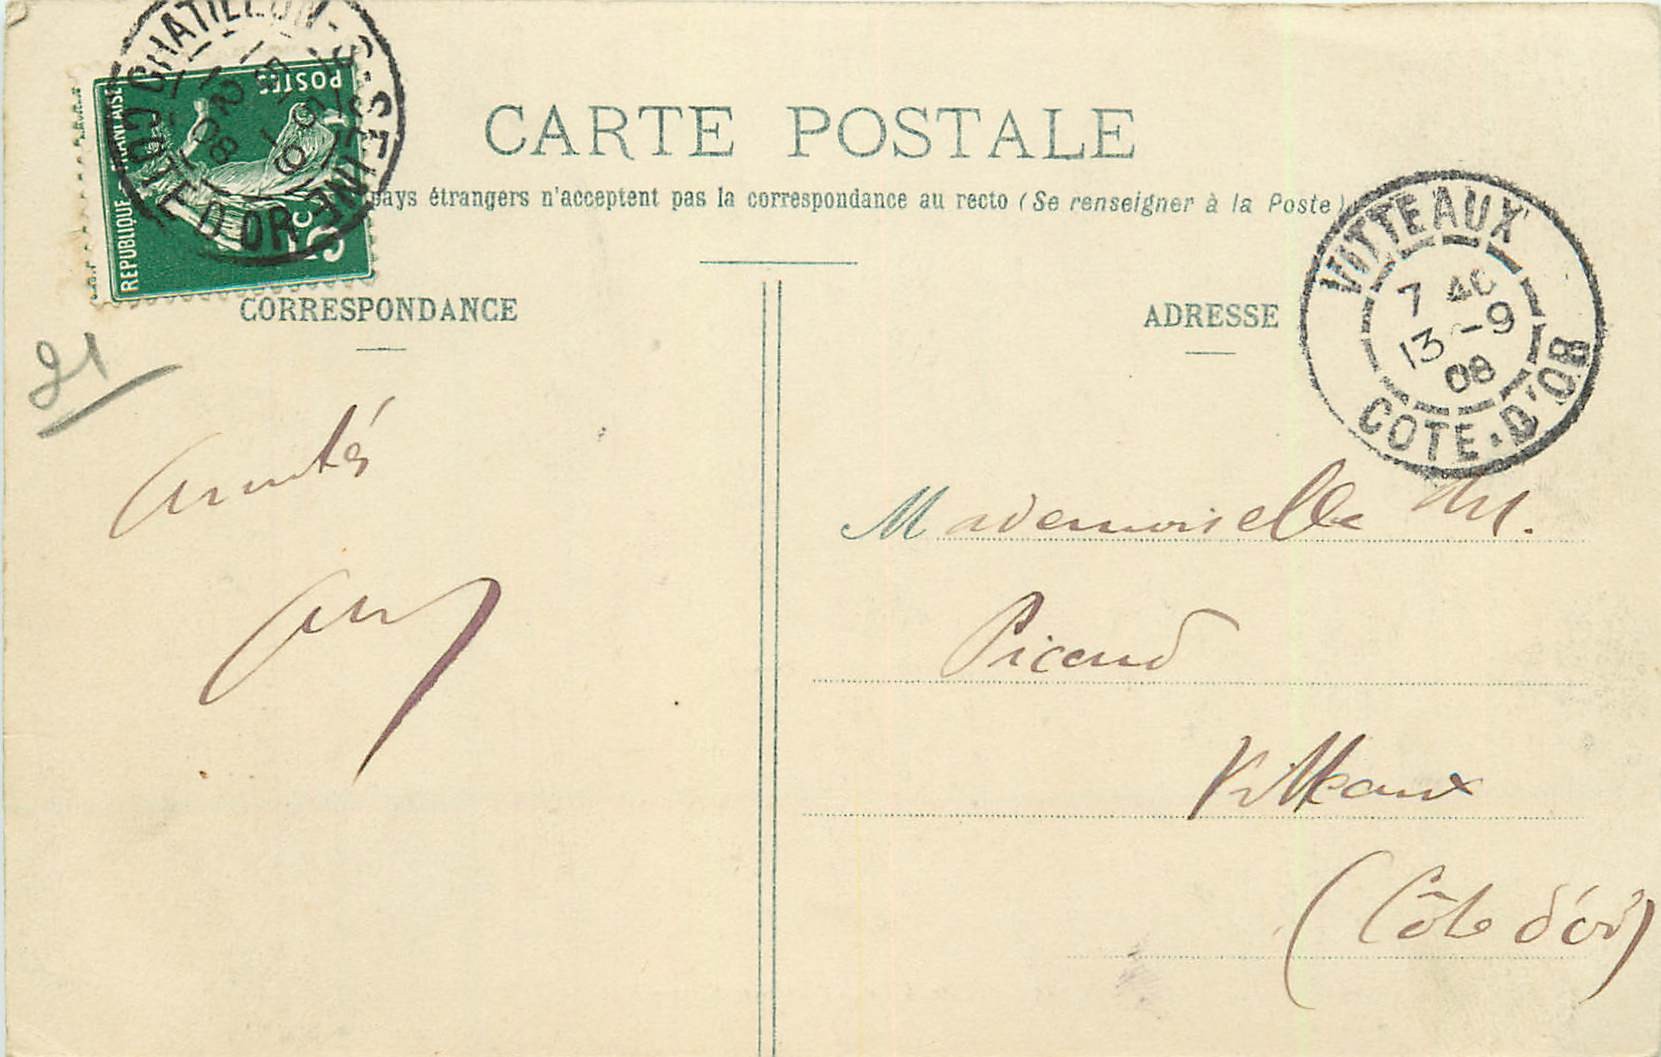 CHATILLON-S-SEINE
CÔTE D'OR
RÉPUBLIQUE FRANÇAISE
POSTES
5c
CARTE POSTALE
pays étrangers n'acceptent pas la correspondance au recto (Se renseigner à la Poste)
VITTEAUX
7 40
13-9
08
COTE-D'OR
CORRESPONDANCE
ADRESSE
21
Amitiés
Mademoiselle M.
Picard
Vitteaux
(Côte d'or)